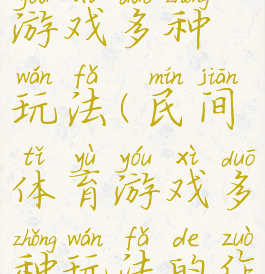 yóu xì duō zhǒng
游戏多种
wán fǎ mín jiān
玩法(民间
tǐ yù yóu xì duō
体育游戏多
zhǒng wán fǎ de zuò
种玩法的作